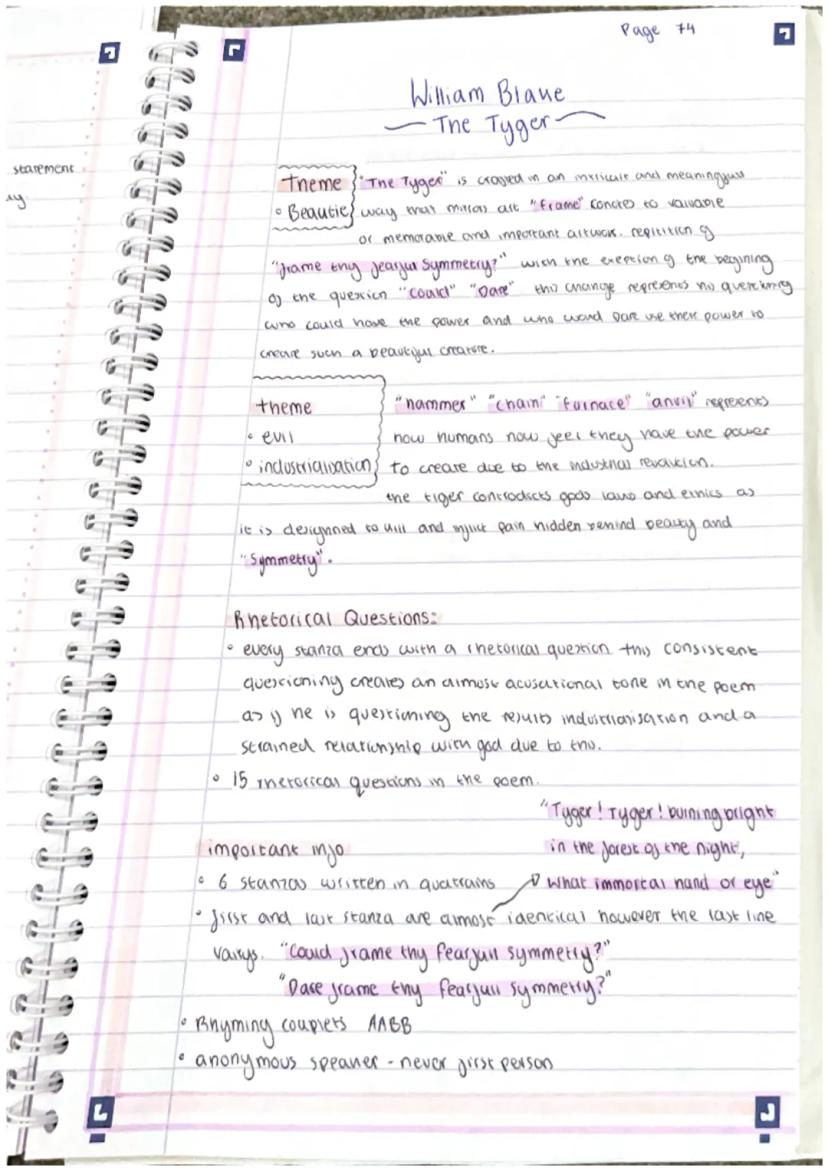 Page 74
William Blake
The Tyger
statement
ey
Theme
• Beautie
"The Tyger" is crafted in an intricate and meaningfull
way that mirrors art "frame" conotes to valuable
or memorable and important artwork. repitition of
"frame thy fearfull Symmetry?" with the exeption of the begining
of the question "Could" "Dare" this change represents his quereting
who could have the power and who would Dare use their power to
create such a beautiful creature.
theme
• evil
• industrialisation
"hammer" "chain" "furnace" "anvil" represents
how humans now feel they have the power
to create due to the industrial revolution.
the tiger contradicts gods laws and ethics as
it is designned to kill and inflict pain hidden behind beauty and
"Symmetry".
Rhetorical Questions:
• every stanza ends with a rhetorical question this consistent
questioning creates an almost acusational tone in the poem
as if he is questioning the results industrianisation and a
strained relationship with god due to this.
• 15 rhetorical questions in the poem.
"Tyger! Tyger! burning bright
in the forest of the night,
What immortal hand or eye"
important info
• 6 stanzas written in quatrains
• first and last stanza are almost identical however the last line
varys. "Could frame thy fearfull symmetry?"
"Dare frame thy fearfull symmetry?"
• Rhyming couplets AABB
• anonymous speaker - never first person